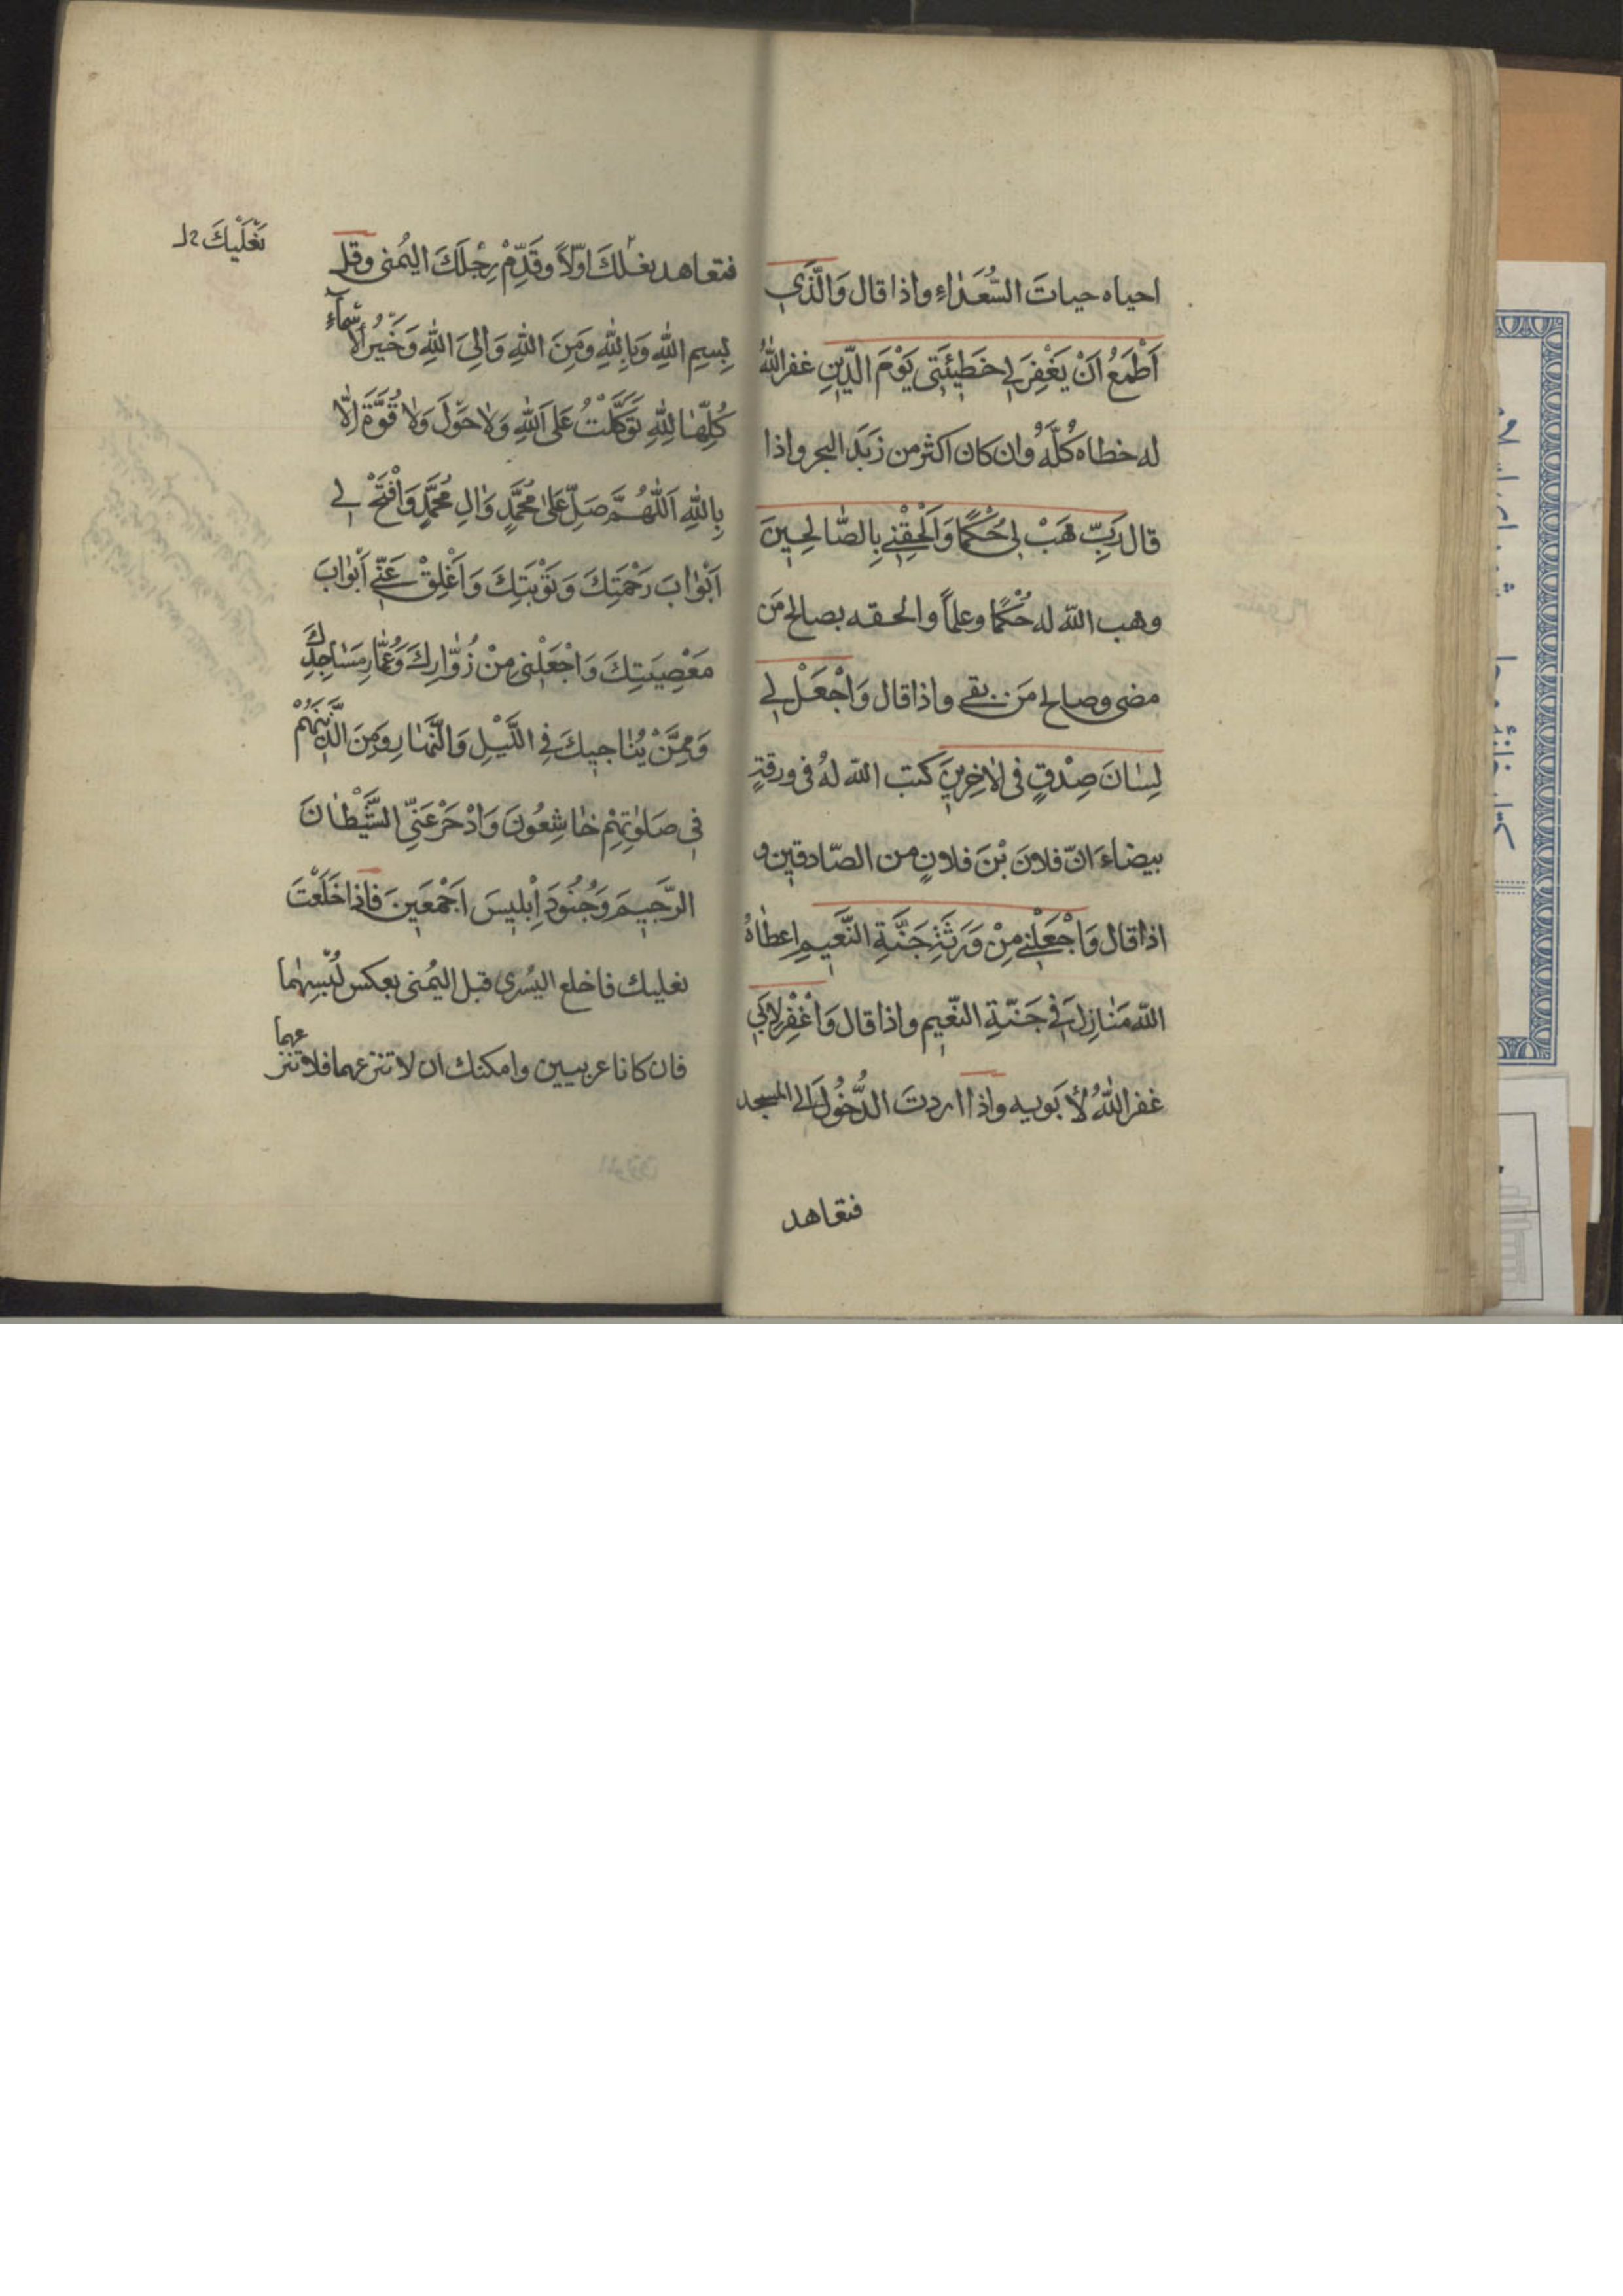 احياه حياتَ السُّعَدٰاءِ واذا قال وَالَّذَي
اَطْمَعُ اَنْ يَغْفِرَ لي خَطٖيئَتٖى يَوْمَ الدّٖينِ غفر اللّٰهُ
له خطاه كُلَّهُ وان كان اكثر من زَبَدِ البحر واذا
قال رَبِّ هَبْ لٖى حُكْمًا وَاَلْحِقْنٖي بِالصّٰالِحٖينَ
وهب اللّه له حُكْمًا وعلماً والحقه بصالح مَن
مضى وصالح مَن بقي واذا قال وَاجْعَلْ لٖي
لِسٰانَ صِدْقٍ فى الاٰخِرٖينَ كتب اللّه لهُ فى ورقةٍ
بيضاءَ انّ فلانَ بْنَ فلانٍ من الصّادقين و
اذا قال وَاجْعَلْنٖي مِنْ وَرَثَةِ جَنَّةِ النَّعٖيمِ اعطٰاهُ
اللّه مَنٰازِلَ فٖي جَنّةِ النّعٖيم واذا قال وَاغْفِرْ لِاَبٖي
غفر اللّٰهُ لأبَويه واذا اردتَ الدُّخُولَ الى المسجد
فتعاهد
نَعْلَيْكَ
فتعاهد نعلك اوّلاً وقَدِّمْ رِجْلَكَ اليُمْنى وقل
بِسِمِ اللّٰهِ وَبِاللّٰهِ وَمِنَ اللّٰهِ وَاِلىَ اللّٰهِ وَخَيْرُ الْاَسْمآءِ
كُلِّهٰا لِلّٰهِ تَوَكَّلْتُ عَلَى اللّٰهِ وَلاٰ حَوْلَ وَلاٰ قُوَّةَ اِلّٰا
بِاللّٰهِ اَللّٰهُمَّ صَلِّ عَلىٰ مُحَمَّدٍ وَاٰلِ مُحَمَّدٍ وَافْتَحْ لٖي
اَبْوٰابَ رَحْمَتِكَ وَتَوْبَتِكَ وَاَغْلِقْ عَنّٖي اَبْوٰابَ
مَعْصِيَتِكَ وَاجْعَلْنٖى مِنْ زُوّٰارِكَ وَعُمّٰارِ مَسٰاجِدِكَ
وَمِمَّنْ يُنٰاجٖيكَ فِي اللَّيْلِ وَالنَّهٰارِ وَمِنَ الَّذٖينَ هُمْ
فٖى صَلوٰتِهِمْ خٰاشِعُونَ وَادْحَرْ عَنِّي الشَّيْطٰانَ
الرَّجٖيمَ وَجُنُودَ اِبْلٖيسَ اَجْمَعٖينَ فَاِذا خَلَعْتَ
نعليك فاخلع اليُسرى قبل اليُمنى بعكس لُبْسِهٰما
فان كانا عربيين وامكنك ان لا تنزعهما فلا تنزعهما